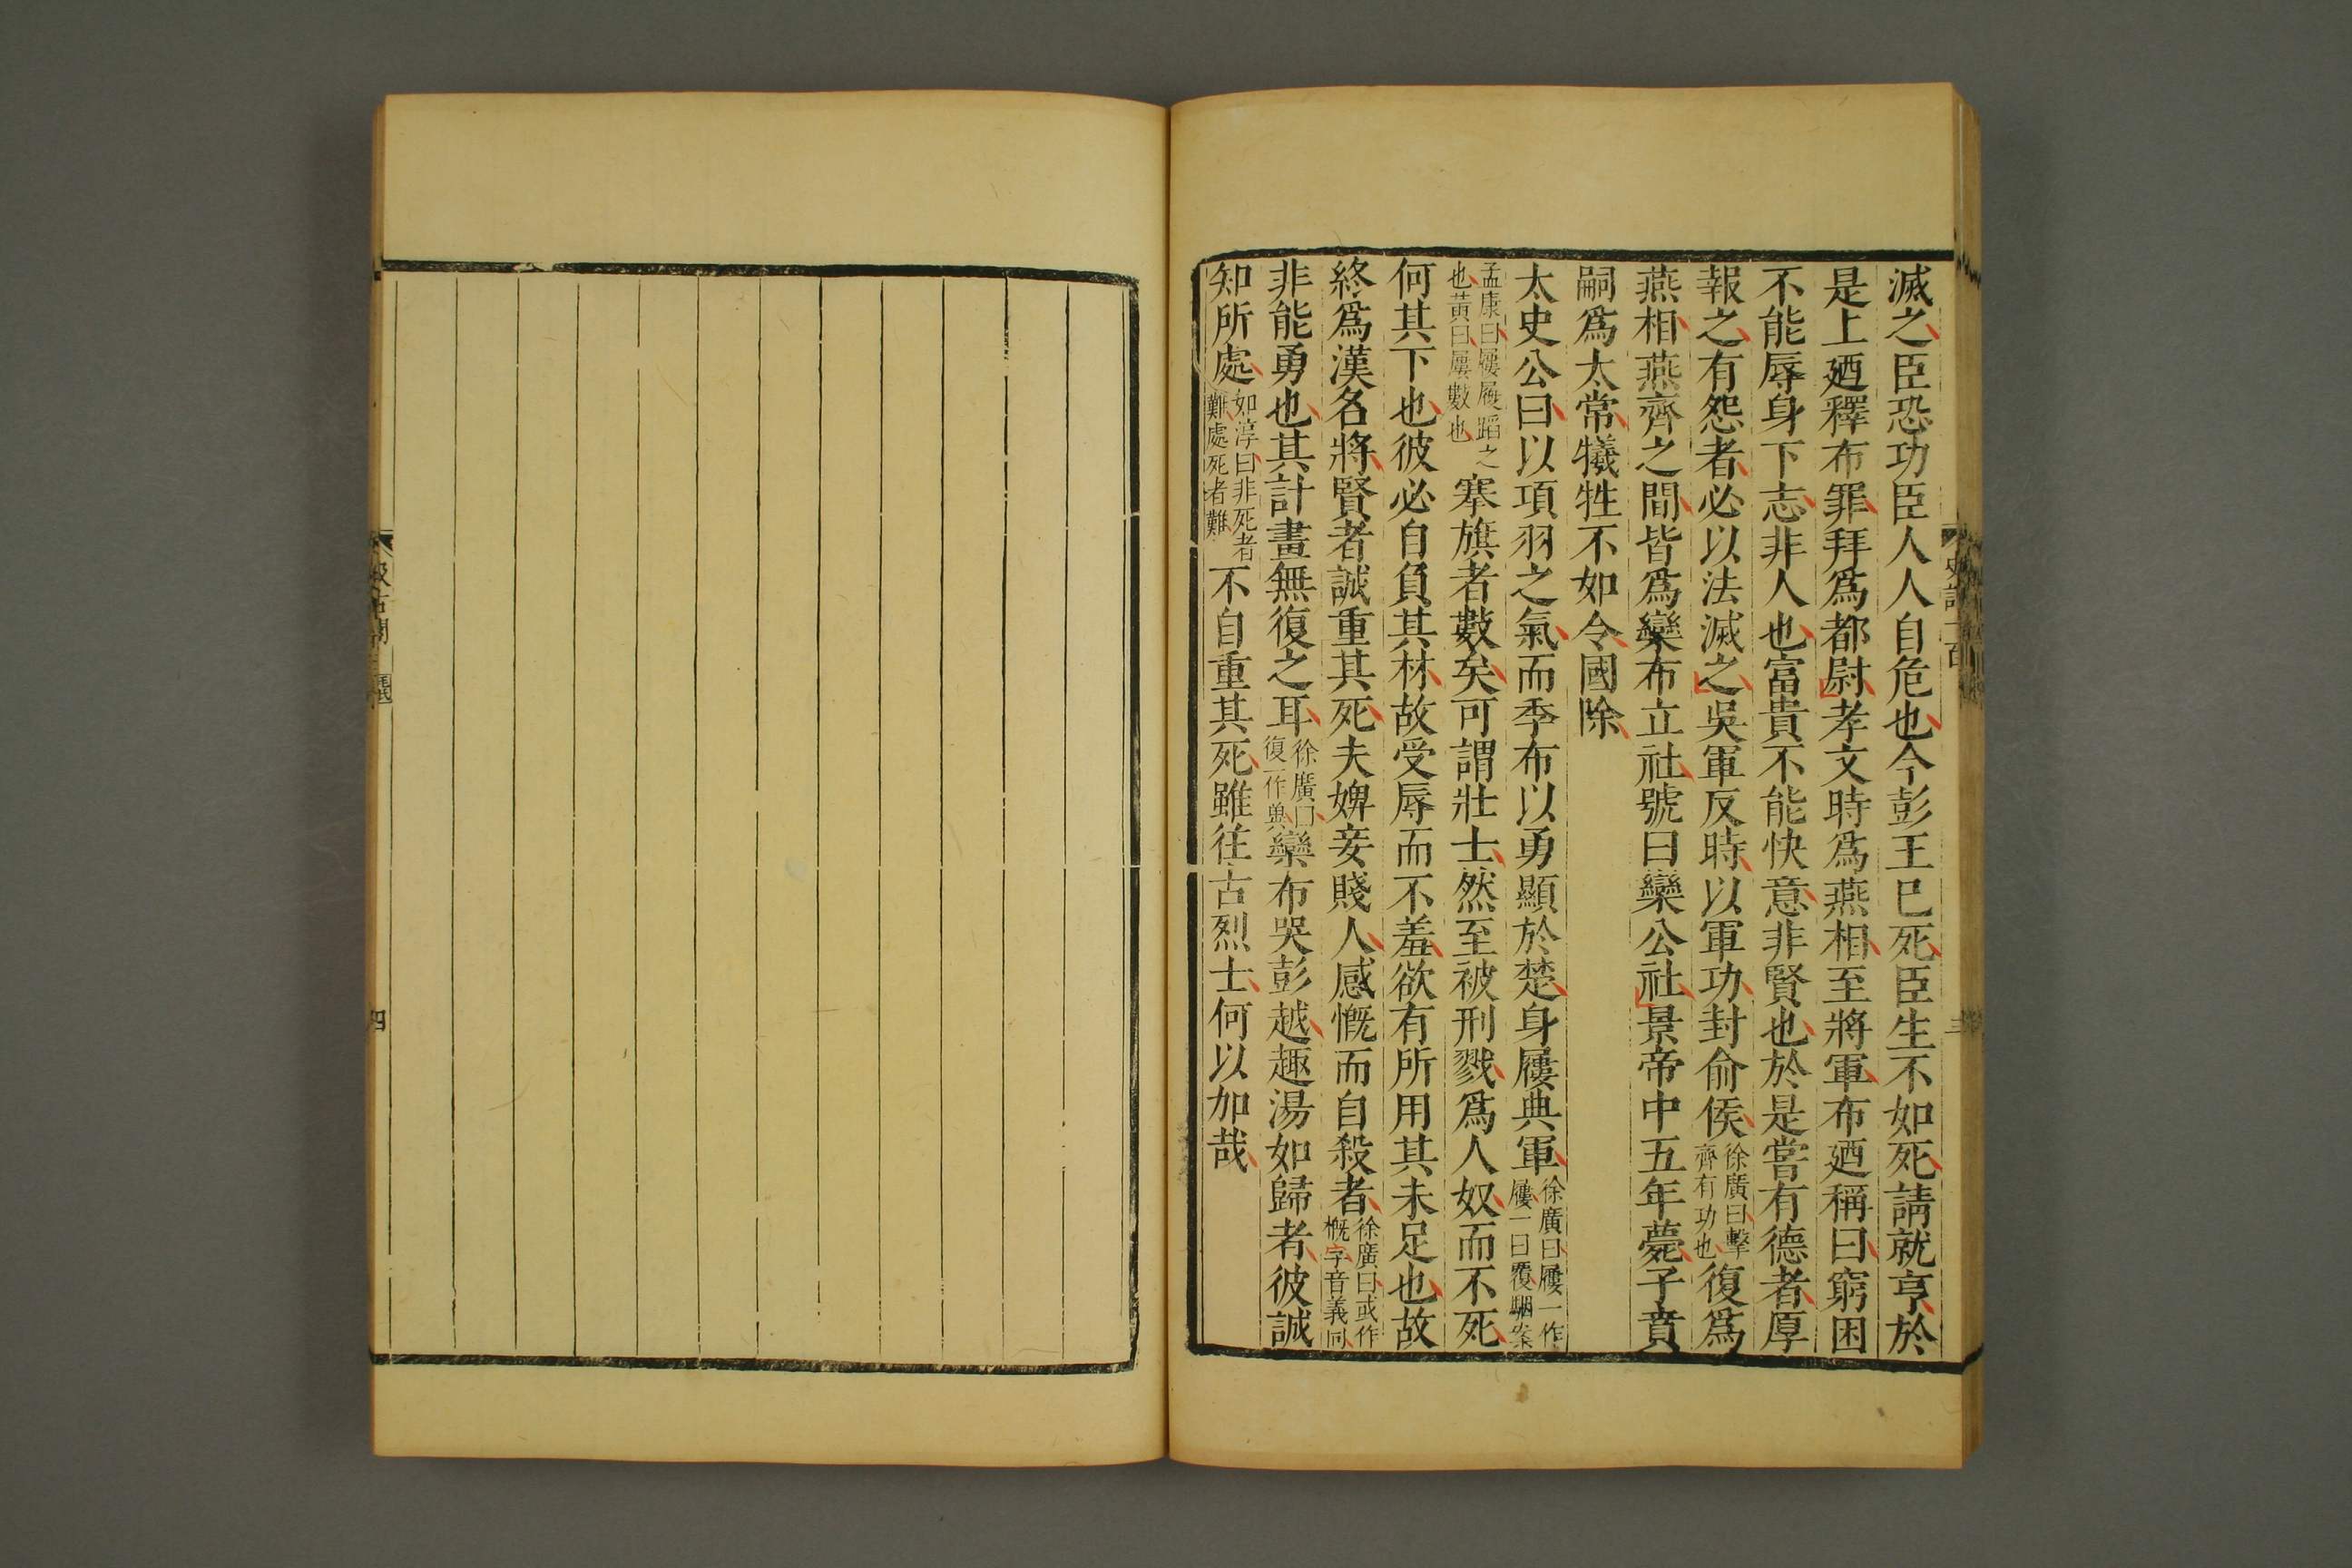 滅之臣恐功臣人人自危也今彭王已死臣生不如死請就亨於
是上廼釋布罪拜爲都尉孝文時爲燕相至將軍布廼稱曰窮困
不能辱身下志非人也富貴不能快意非賢也於是嘗有德者厚
報之有怨者必以法滅之吳軍反時以軍功封俞侯徐廣曰擊齊有功也復爲
燕相燕齊之間皆爲欒布立社號曰欒公社景帝中五年薨子賁
嗣爲太常犧牲不如令國除
太史公曰以項羽之氣而季布以勇顯於楚身屨典軍徐廣曰屨一作屨一曰覆駰案
孟康曰屨履蹈之也黃曰屢數也搴旗者數矣可謂壯士然至被刑戮爲人奴而不死
何其下也彼必自負其材故受辱而不羞欲有所用其未足也故
終爲漢名將賢者誠重其死夫婢妾賤人感慨而自殺者徐廣曰或作概字音義同
非能勇也其計畫無復之耳徐廣曰復一作與欒布哭彭越趣湯如歸者彼誠
知所處如淳曰非死者難處死者難不自重其死雖往古烈士何以加哉
史記一百
三
汲古閣
毛氏
四